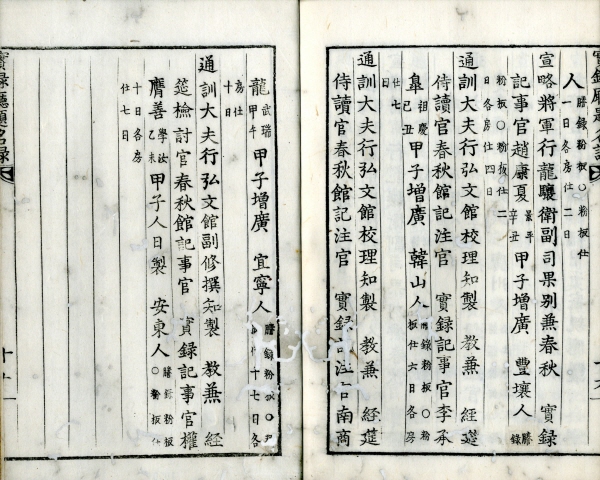 人 謄錄粉板○粉板仕
一日各房仕二日
宣略將軍行龍驤衛副司果別兼春秋 實錄
記事官趙康夏 景平 辛丑 甲子增廣 豐壤人 謄錄
粉板○粉板仕二
日各房仕四日
通訓大夫行弘文館校理知製 教兼 經筵
侍讀官春秋館記注官 實錄記事官李承
皐 祖慶 己丑 甲子增廣 韓山人 謄錄粉板○粉
板仕六日各房
仕七
日
通訓大夫行弘文館校理知製 教兼 經筵
侍讀官春秋館記注官 實錄記注官南商
龍 武瑞 甲午 甲子增廣 宜寧人 謄錄粉板○
十七日各
房仕
十日
通訓大夫行弘文館副修撰知製 教兼 經
筵檢討官春秋館記事官 實錄記事官權
膺善 學汝 乙未 甲子人日製 安東人 謄錄粉板
○粉板仕
十日各房
仕七日
實錄廳題名錄